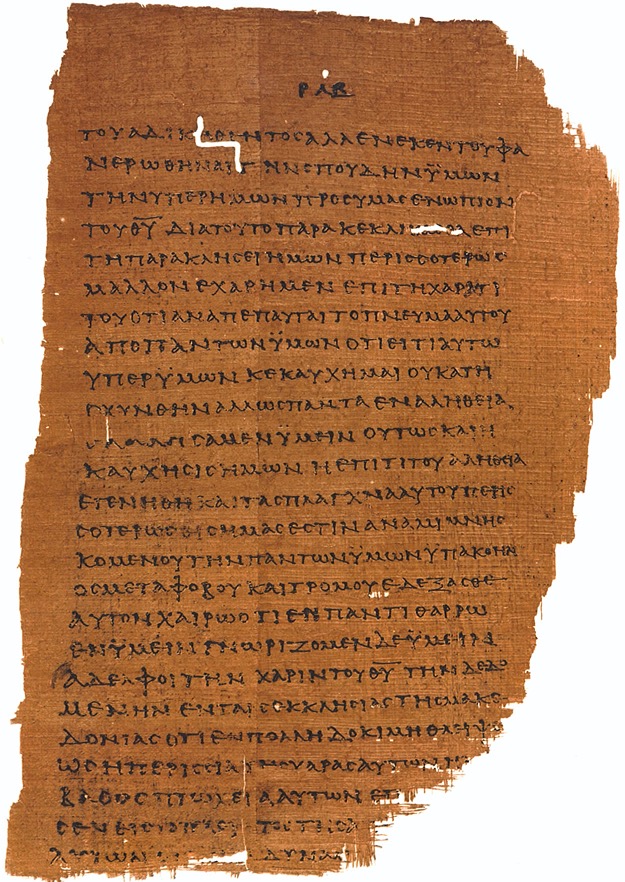 ΡΛΒ
ΤΟΥΑΔΙΚΗΘΕΝΤΟϹΑΛΛΑΕΝΕΚΕΝΤΟΥΦΑ
ΝΕΡΩΘΗΝΑΙΤΗΝϹΠΟΥΔΗΝΫΜΩΝ
ΤΗΝΥΠΕΡΗΜΩΝΠΡΟϹΥΜΑϹΕΝΩΠΙΟΝ
ΤΟΥΘ̅Υ̅ΔΙΑΤΟΥΤΟΠΑΡΑΚΕΚΛΗ ΕΠΙ
ΤΗΠΑΡΑΚΛΗϹΕΙΗΜΩΝΠΕΡΙϹϹΟΤΕΡΩϹ
ΜΑΛΛΟΝΕΧΑΡΗΜΕΝΕΠΙΤΗΧΑΡΑΤΙ
ΤΟΥΟΤΙΑΝΑΠΕΠΑΥΤΑΙΤΟΠΝΕΥΜΑΑΥΤΟΥ
ΑΠΟΠΑΝΤΩΝΫΜΩΝΟΤΙΕΙΤΙΑΥΤΩ
ΥΠΕΡΥΜΩΝΚΕΚΑΥΧΗΜΑΙΟΥΚΑΤΗ
ϹΧΥΝΘΗΝΑΛΛΩϹΠΑΝΤΑΕΝΑΛΗΘΕΙΑ
ϹΑΜΕΝΫΜΕΙΝΟΥΤΩϹΚΑΙΗ
ΚΑΥΧΗϹΙϹΗΜΩΝΗΕΠΙΤΙΤΟΥΑΛΗΘΕΙΑ
ΕΓΕΝΗΘΗΚΑΙΤΑϹΠΛΑΓΧΝΑΑΥΤΟΥΠΕΡΙϹ
ϹΟΤΕΡΩϹΕΙϹΗΜΑϹΕϹΤΙΝΑΝΑΜΙΜΝΗϹ
ΚΟΜΕΝΟΥΤΗΝΠΑΝΤΩΝΫΜΩΝΥΠΑΚΟΗΝ
ΟϹΜΕΤΑΦΟΒΟΥΚΑΙΤΡΟΜΟΥΕΔΕΞΑϹΘΕ
ΑΥΤΟΝΧΑΙΡΩΟΤΙΕΝΠΑΝΤΙΘΑΡΡΩ
ΕΝΫΜΕΙΝΓΝΩΡΙΖΟΜΕΝΔΕΫΜΕΙΝ
ΑΔΕΛΦΟΙΤΗΝΧΑΡΙΝΤΟΥΘ̅Υ̅ΤΗΝΔΕΔΟ
ΜΕΝΗΝΕΝΤΑΙϹΕΚΚΛΗϹΙΑϹΤΗϹΜΑΚΕ
ΔΟΝΙΑϹΟΤΙΕΝΠΟΛΛΗΔΟΚΙΜΗΘΛΕΙΨΕ
ΩϹΗΠΕΡΙϹϹΙΑΤΗϹΧΑΡΑϹΑΥΤΩΝ
ΒΑΘΟΥϹΠΤΩΧΕΙΑΑΥΤΩΝΕΠ
ϹΕΝΕΙϹΤΟΠΛ ΤΟϹΤΗϹ
ΔΥΝΑΜ